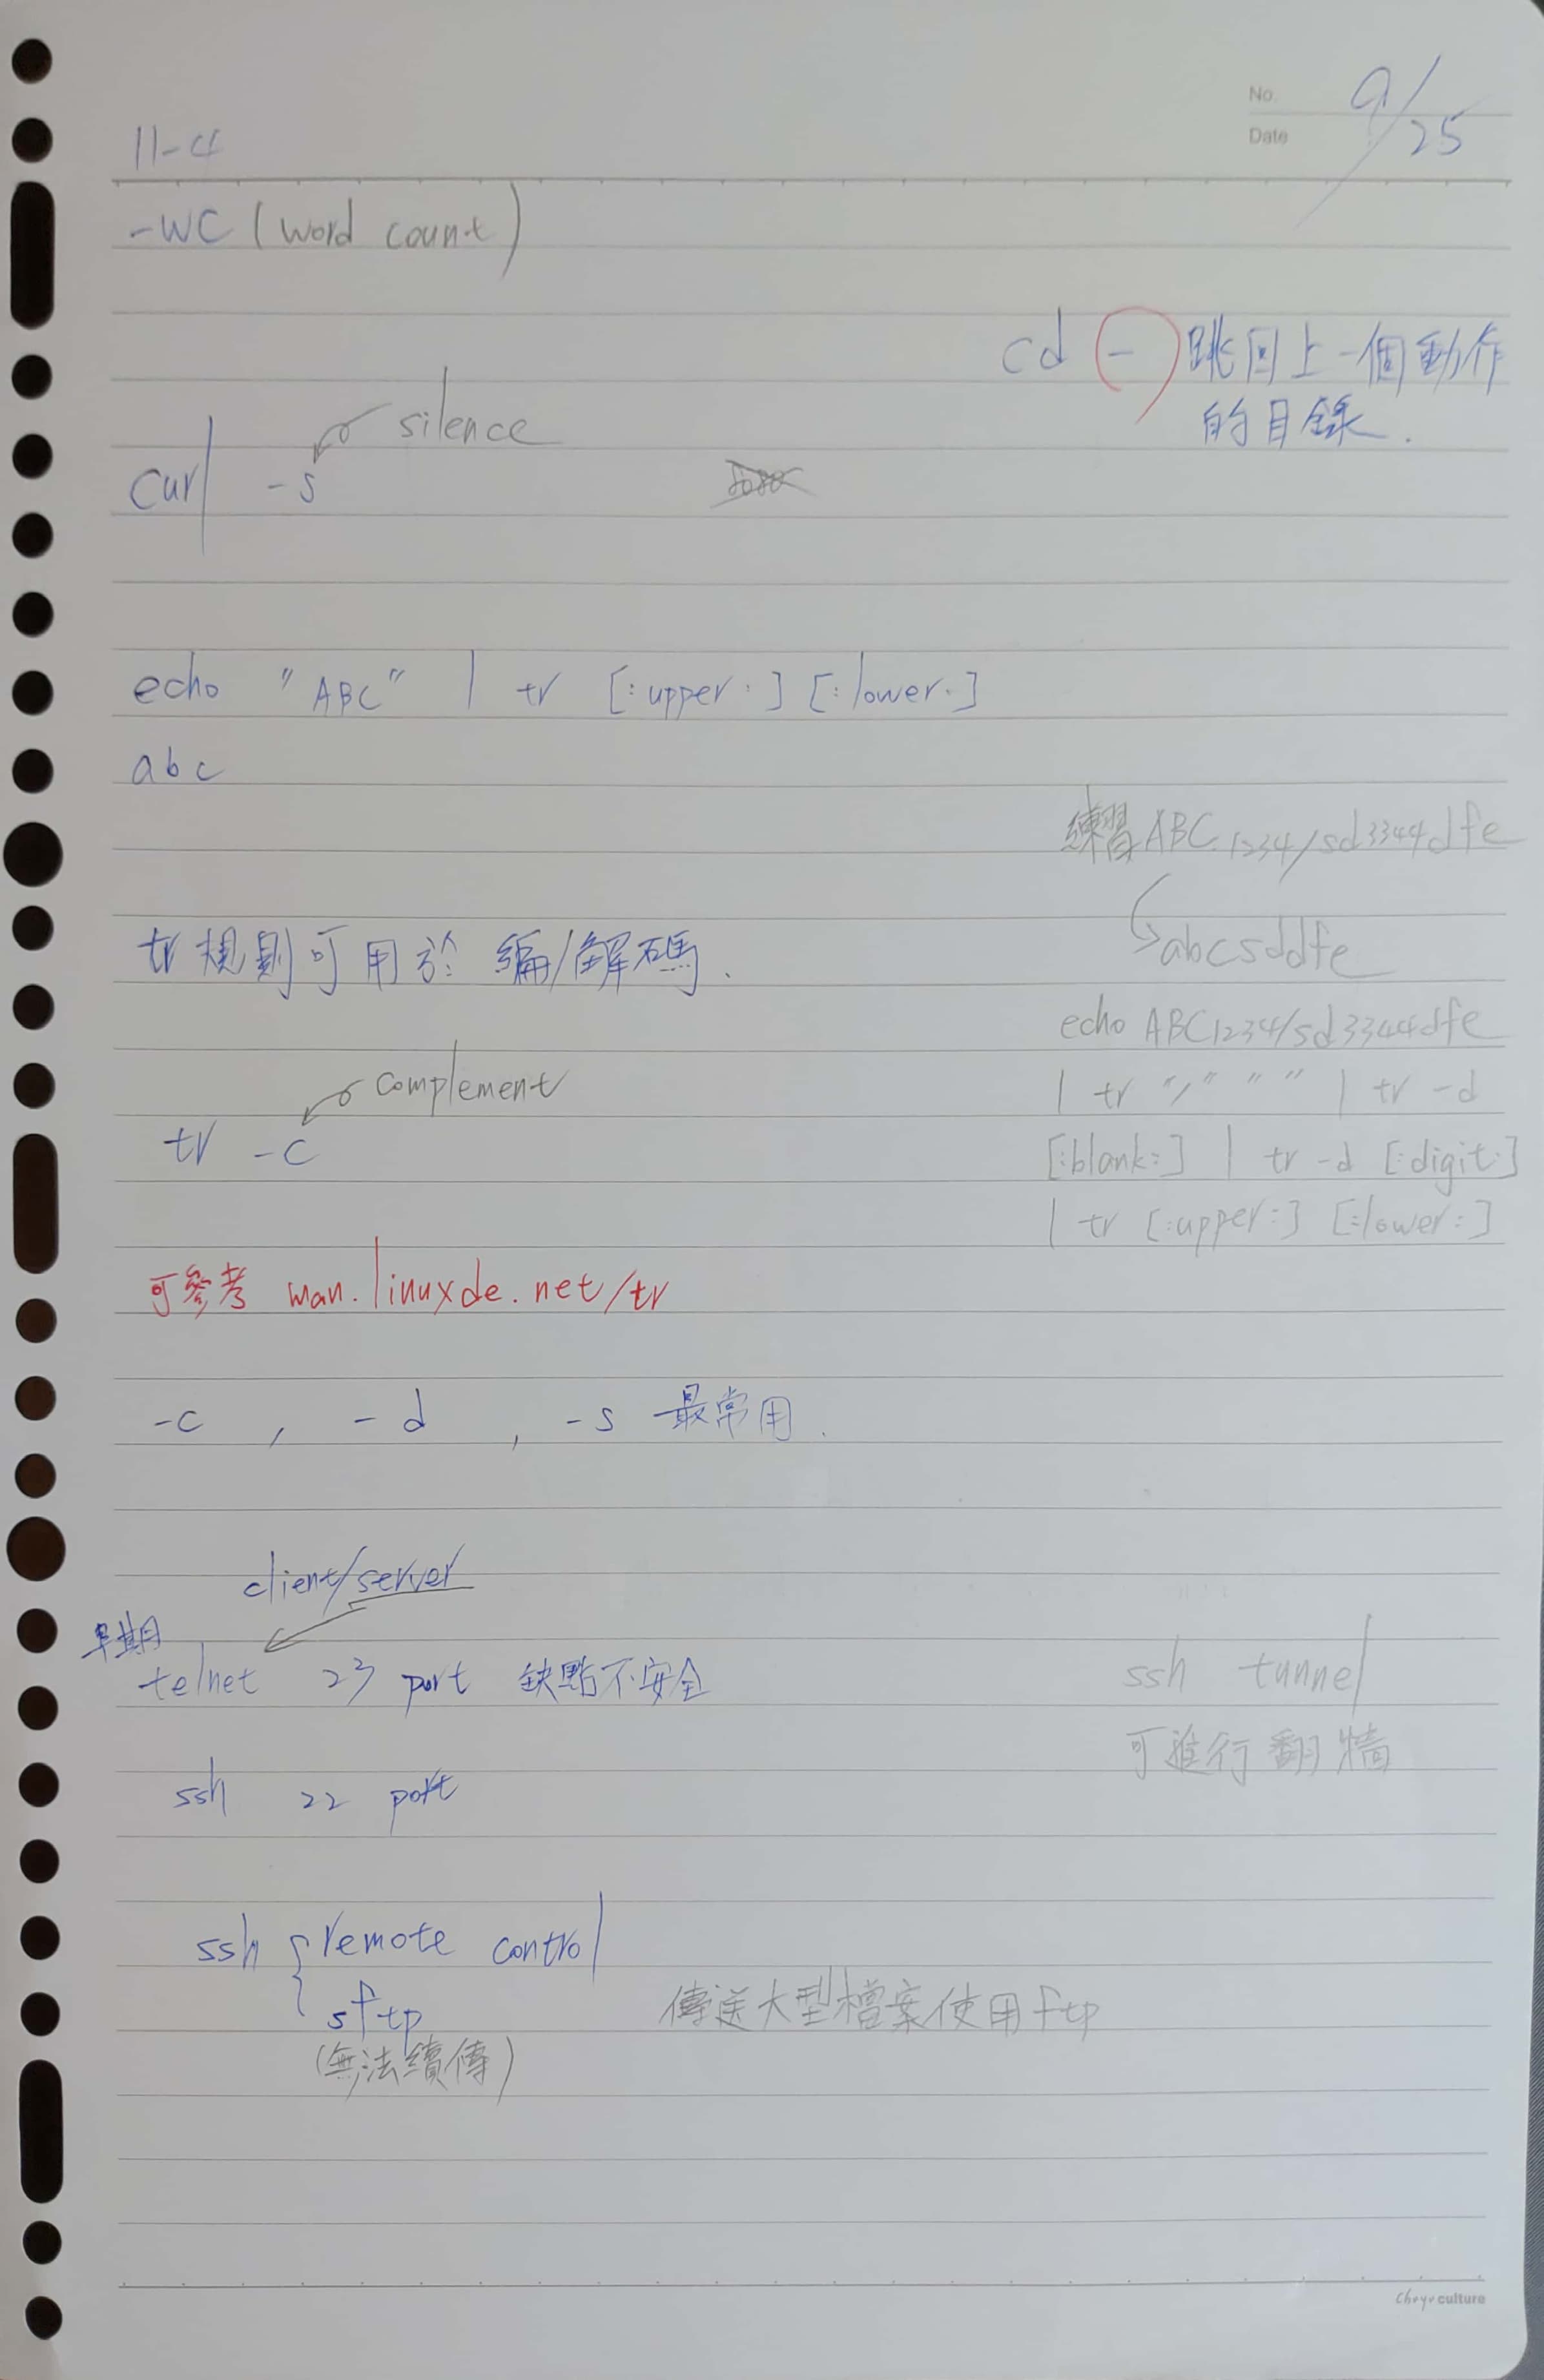 No.
Date
9/25
11-4
-WC (word count)
cd - 跳回上一個動作
的目錄.
silence
curl -s
echo "ABC" | tr [:upper:] [:lower:]
abc
練習ABC1234/sd3344dfe
abcsddfe
tr規則可用於 編/解碼.
echo ABC1234/sd3344dfe
| tr "/" " " | tr -d
[:blank:] | tr -d [:digit:]
| tr [:upper:] [:lower:]
complement
tr -c
可參考 man.linuxde.net/tr
-c , -d , -s 最常用.
client/server
早期
telnet 23 port 缺點不安全
ssh tunnel
可進行翻牆
ssh 22 port
ssh { remote control
sftp
(無法續傳)
傳送大型檔案使用ftp
culture